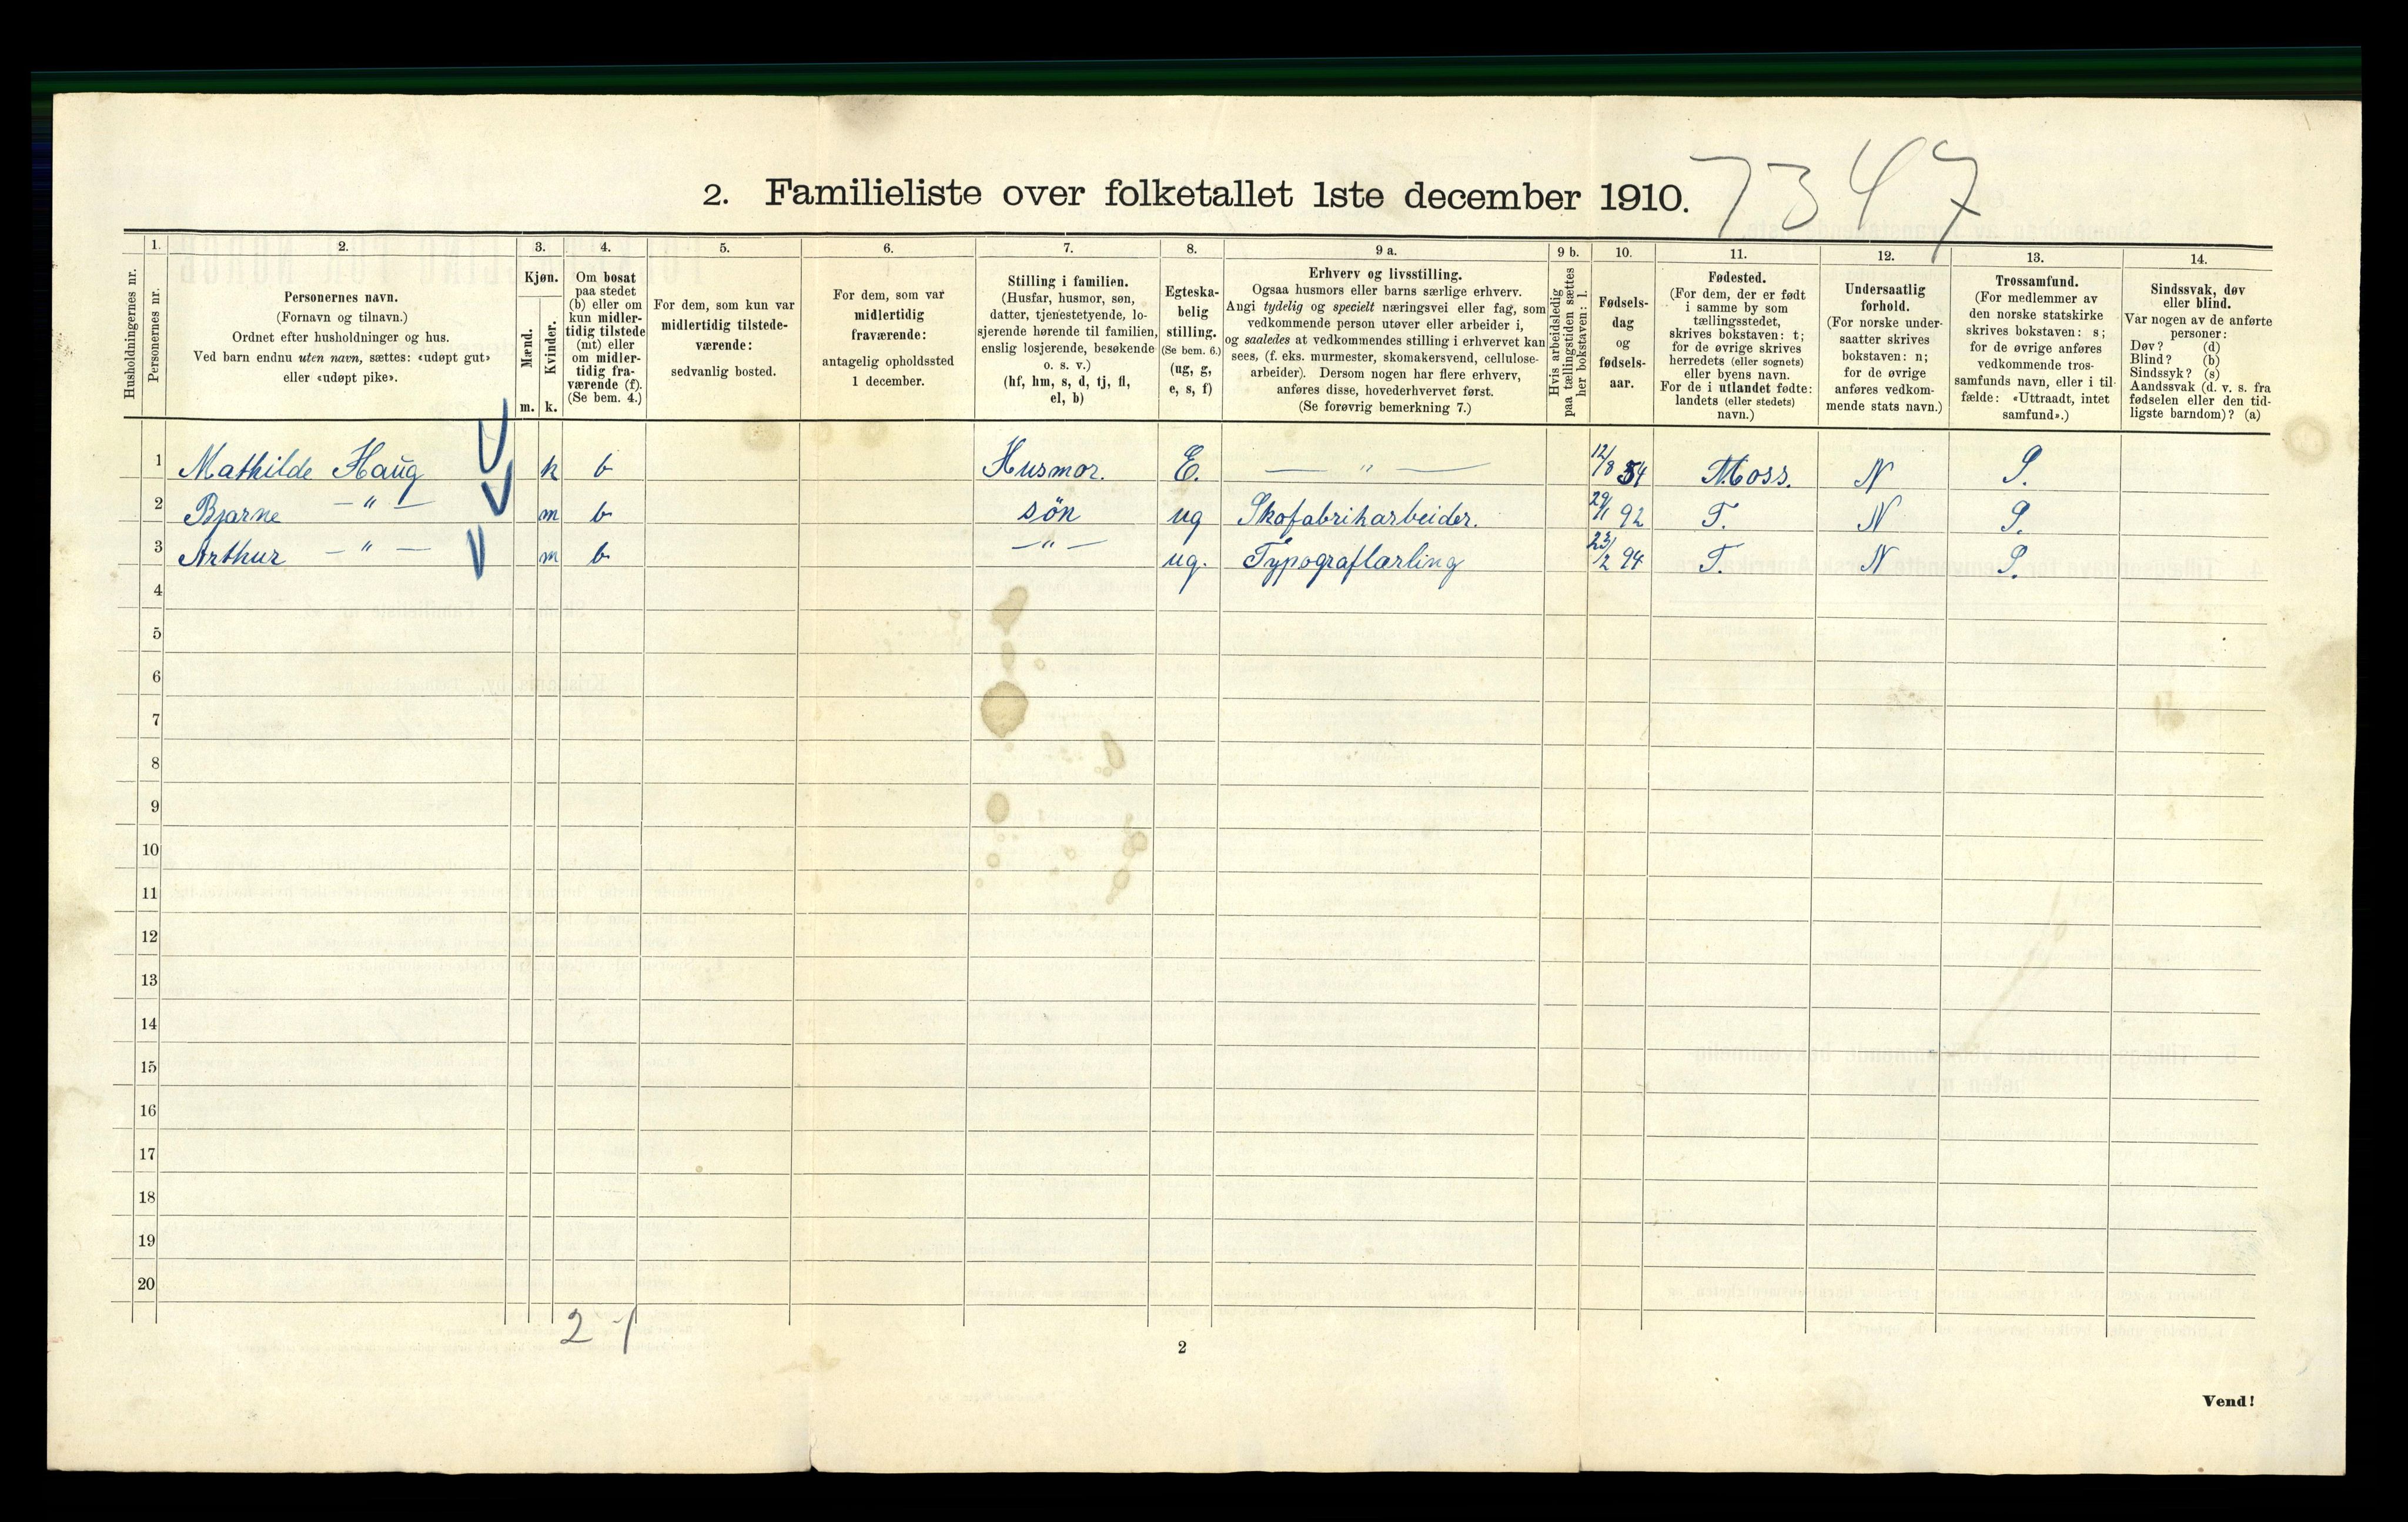 2. Familieliste over folketallet 1ste december 1910.
7347
Husholdningernes nr.
1.
Personernes nr.
2.
Personernes navn.
(Fornavn og tilnavn.)
Ordnet efter husholdninger og hus.
Ved barn endnu uten navn, sættes: «udøpt gut»
eller «udøpt pike».
3.
Kjøn.
Mænd.
Kvinder.
m. k.
4.
Om bosat
paa stedet
(b) eller om
kun midler-
tidig tilstede
(mt) eller
om midler-
tidig fra-
værende (f).
(Se bem. 4.)
5.
For dem, som kun var
midlertidig tilstede-
værende:
sedvanlig bosted.
6.
For dem, som var
midlertidig
fraværende:
antagelig opholdssted
1 december.
7.
Stilling i familien.
(Husfar, husmor, søn,
datter, tjenestetyende, lo-
sjerende hørende til familien,
enslig losjerende, besøkende
o. s. v.)
(hf, hm, s, d, tj, fl,
el, b)
8.
Egteska-
belig
stilling.
(Se bem. 6.)
(ug, g,
e, s, f)
9 a.
Erhverv og livsstilling.
Ogsaa husmors eller barns særlige erhverv.
Angi tydelig og specielt næringsvei eller fag, som
vedkommende person utøver eller arbeider i,
og saaledes at vedkommendes stilling i erhvervet kan
sees, (f. eks. murmester, skomakersvend, cellulose-
arbeider). Dersom nogen har flere erhverv,
anføres disse, hovederhvervet først.
(Se forøvrig bemerkning 7.)
9 b.
Hvis arbeidsledig
paa tællingstiden sættes
her bokstaven: l.
10.
Fødsels-
dag
og
fødsels-
aar.
11.
Fødested.
(For dem, der er født
i samme by som
tællingsstedet,
skrives bokstaven: t;
for de øvrige skrives
herredets (eller sognets)
eller byens navn.
For de i utlandet fødte:
landets (eller stedets)
navn.)
12.
Undersaatlig
forhold.
(For norske under-
saatter skrives
bokstaven: n;
for de øvrige
anføres vedkom-
mende stats navn.)
13.
Trossamfund.
(For medlemmer av
den norske statskirke
skrives bokstaven: s;
for de øvrige anføres
vedkommende tros-
samfunds navn, eller i til-
fælde: «Uttraadt, intet
samfund».)
14.
Sindssvak, døv
eller blind.
Var nogen av de anførte
personer:
Døv? (d)
Blind? (b)
Sindssyk? (s)
Aandssvak (d. v. s. fra
fødselen eller den tid-
ligste barndom)? (a)
1 Mathilde Haug k b Husmor. E. — " — 12/8 54 Moss. N S.
2 Bjarne — " — m b søn ug Skofabrikarbeider. 29/11 92 T. N S.
3 Arthur — " — m b — " — ug. Typograflærling 23/2 94 T. N S.
4
5
6
7
8
9
10
11
12
13
14
15
16
17
18
19
20
2-1
2
Vend!